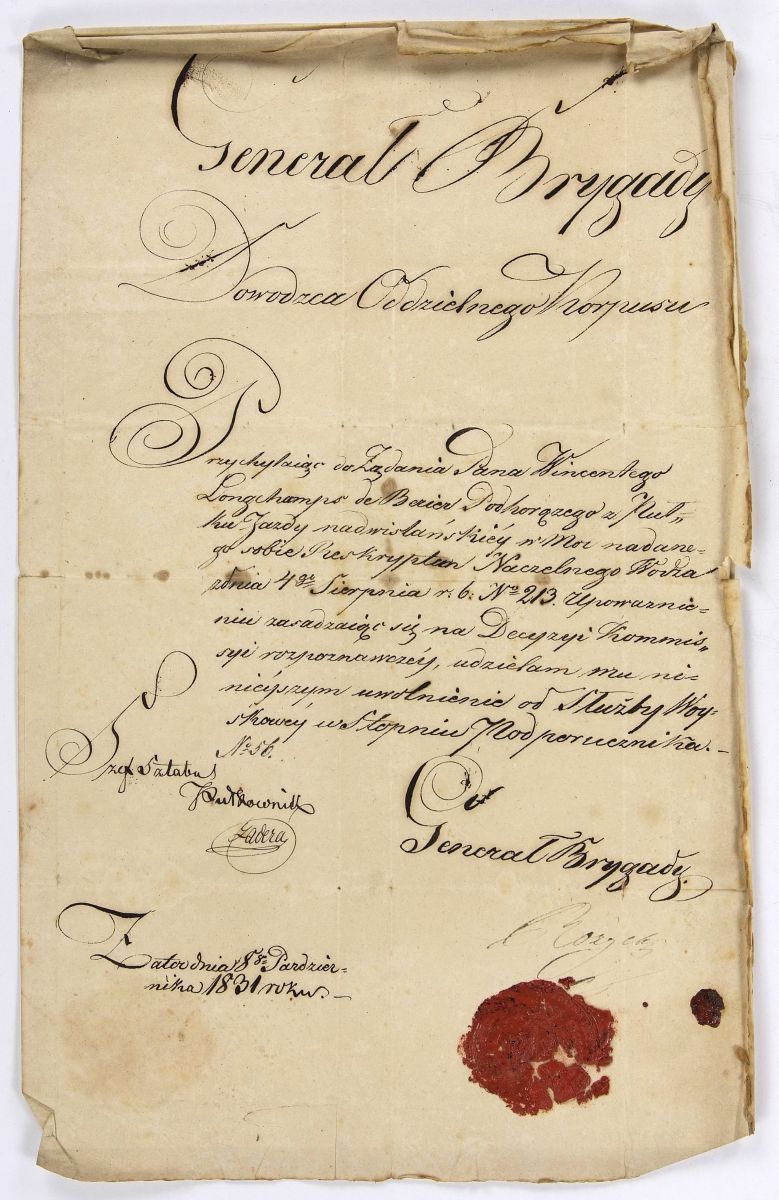 Generał Brygady
Dowodzca Oddzielnego Korpusu
Przychylaiąc do Żądania Pana Wincentego
Longchamps de Berier Podhorążego z Puł„
ku Jazdy nadwiślańskiéy w Moc nadane-
go sobie Reskryptem Naczelnego Wodza
zdnia 4go Sierpnia r. b. No 213. Upoważnie-
niu zasadzaiąc się na Decyzyi Kommis„
syi rozpoznawczéy, udzielam mu ni-
nieyszym uwolnienie od Służby Woy-
skowéy w Stopniu Podporucznika.-
No 56.
Szef Sztabu
Pułkownik
Zadera
Generał Brygady.
Różycki
Zator dnia 8go Pazdzier-
nika 1831 roku.-